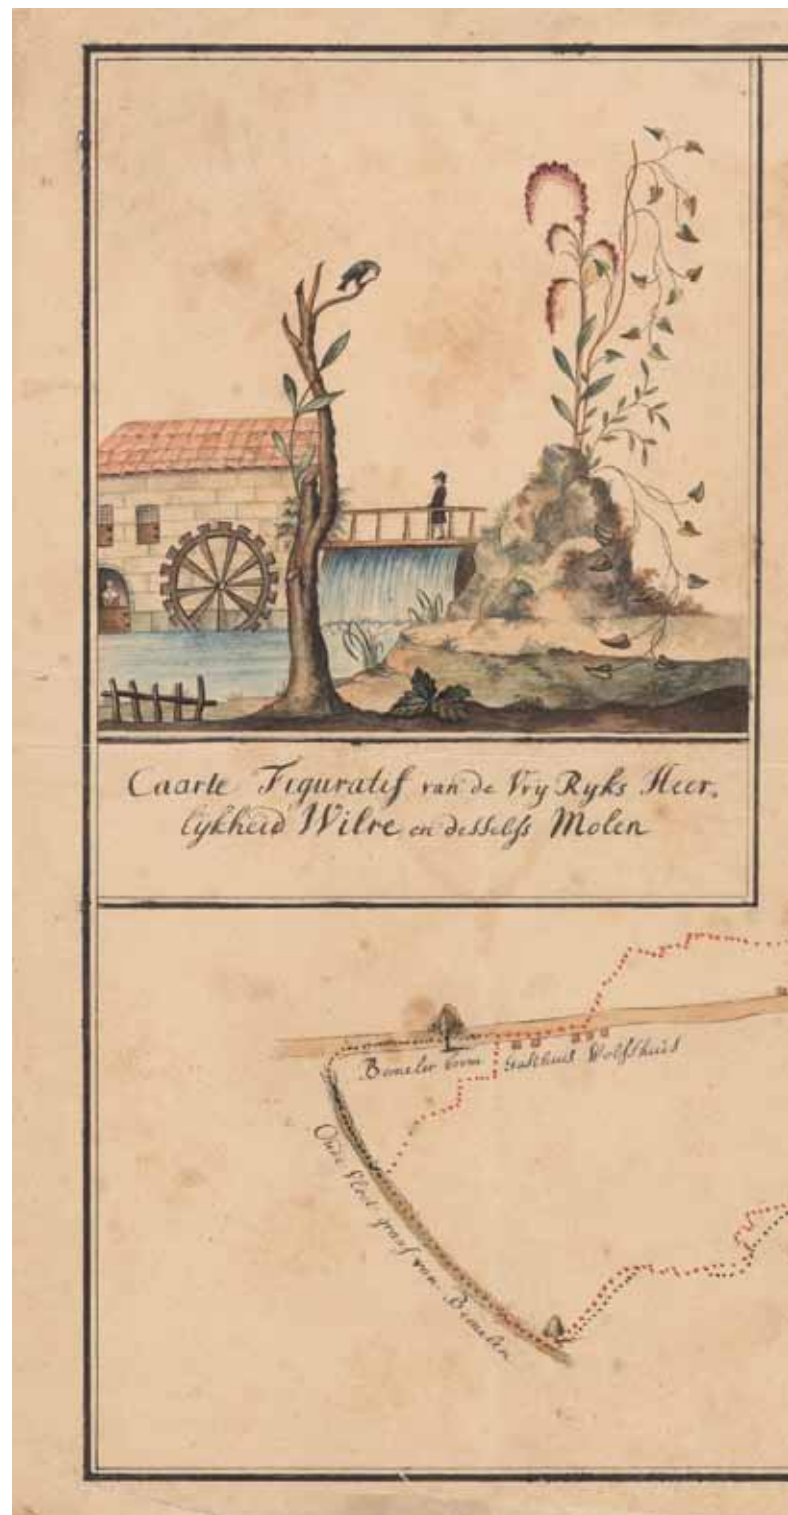 Caarte Figuratif van de Vry Ryks Heer,
lykheid Wilre en desselfs Molen
Bemeler boom Gasthuis Wolfshuis
Oude graaf van Bemelen